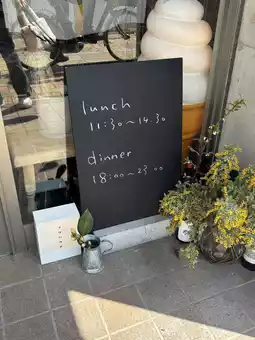 lunch
11:30~14:30
dinner
18:00~23:00